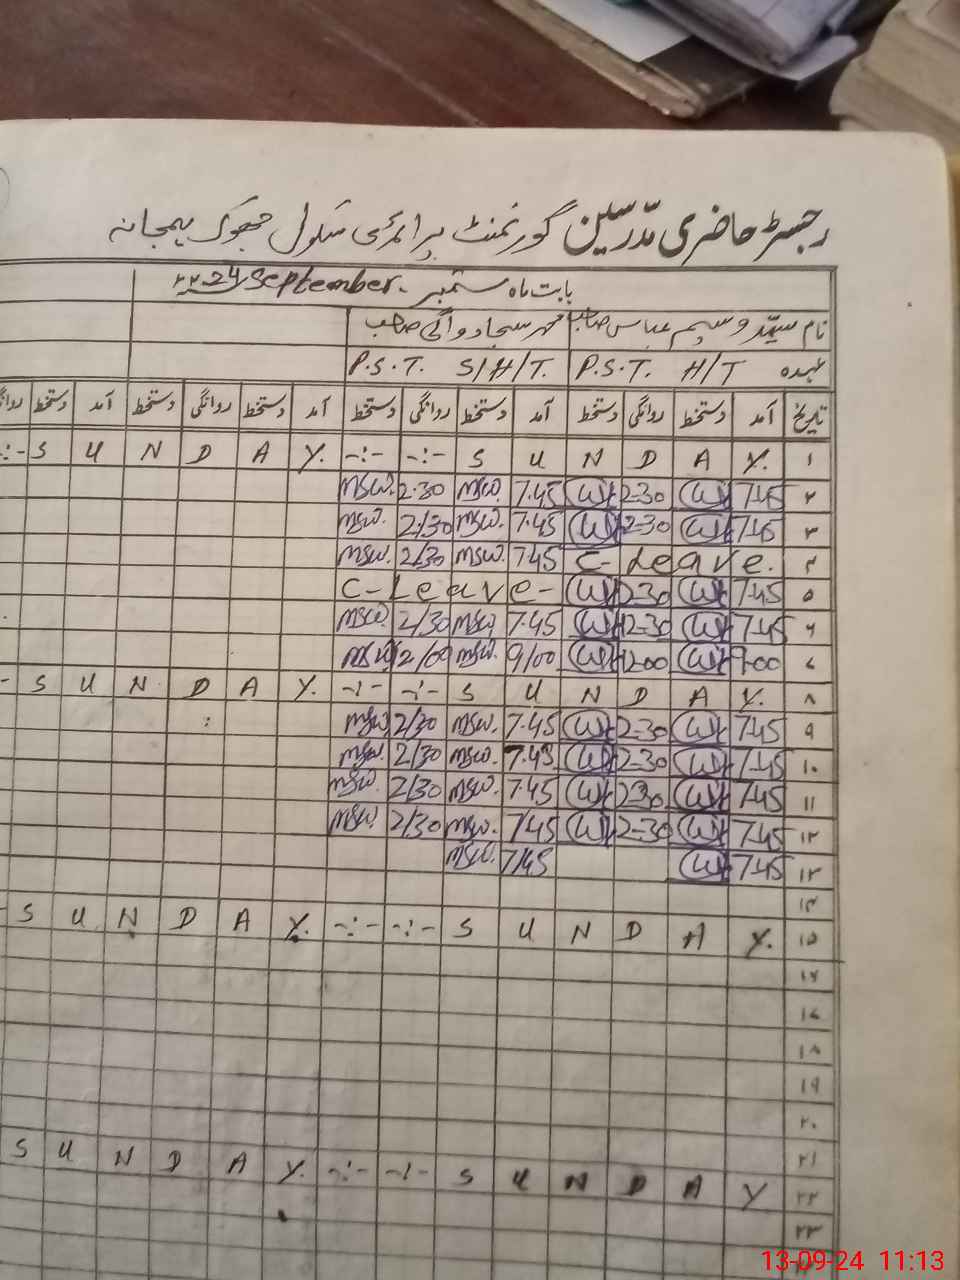 رجسٹر حاضری مدّرسین گورنمنٹ پرائمری سکول جھوک
بابت ماہ ستمبر September.
نام سیّد وسیم عباس صاحب مہر سجاد صاحب
عہدہ P.S.T. H/T P.S.T. S/H/T.
تاریخ آمد دستخط روانگی دستخط آمد دستخط روانگی دستخط آمد دستخط روانگی دستخط آمد دستخط
۱ Y. A D N U S -:- -:- Y. A D N U S -:-
۲ 7-45 2-30 7.45 msw. 2.30 msw.
۳ 7-45 2-30 7.45 msw. 2/30 msw.
۴ C- Leave. 7.45 msw. 2/30 msw.
۵ 7-45 2-30 C-Leave-
۶ 7-45 2-30 7.45 msw. 2/30 msw.
۷ 9-00 12-00 9/00 msw. 12/00 msw.
۸ Y. A D N U S -:- -:- Y. A D N U S -
۹ 7-45 2-30 7.45 msw. 2/30 msw.
۱۰ 7-45 2-30 7.45 msw. 2/30 msw.
۱۱ 7-45 2-30 7.45 msw. 2/30 msw.
۱۲ 7-45 2-30 7/45 msw. 2/30 msw.
۱۳ 7-45 7/45 msw.
۱۴
۱۵ Y. A D N U S -:- -:- Y. A D N U S
۱۶
۱۷
۱۸
۱۹
۲۰
۲۱
۲۲ Y A D N U S -:- -:- Y. A D N U S
۲۳
13-09-24 11:13